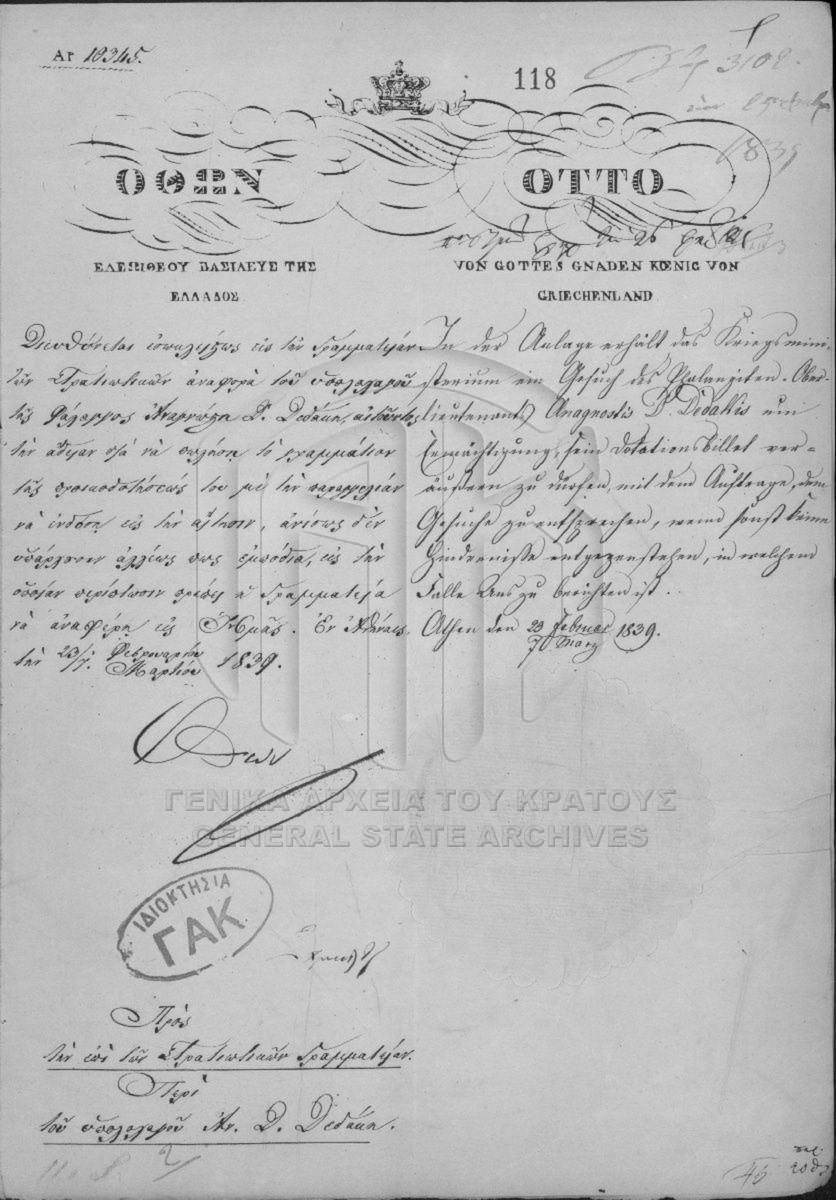 Αρ 10345.
118
3102
1839
ΟΘΩΝ
ΕΛΕῼ ΘΕΟΥ ΒΑΣΙΛΕΥΣ ΤΗΣ
ΕΛΛΑΔΟΣ
Διευθύνεται εἰς τὴν Γραμματείαν
τῶν Στρατιωτικῶν ἀναφορὰ τοῦ ὑπολοχαγοῦ
τῆς φάλαγγος Ἀναγνώστη Δ. Δεδάκη, αἰτοῦντος
τὴν ἄδειαν τοῦ νὰ πωλήσῃ τὸ γραμμάτιον
τῆς προικοδοτήσεώς του μὲ τὴν παραγγελίαν
νὰ ἐνδώσῃ εἰς τὴν αἴτησιν, ἀνίσως δὲν
ὑπάρχουσιν ἀλλέως πως ἐμπόδια, εἰς τὴν
ὁποίαν περίπτωσιν πρέπει ἡ Γραμματεία
νὰ ἀναφέρῃ εἰς Ἡμᾶς. Ἐν Ἀθήναις
τὴν 23/7 Φεβρουαρίου Μαρτίου 1839.
OTTO
VON GOTTES GNADEN KŒNIG VON
GRIECHENLAND
In der Anlage erhält das Kriegsmini-
sterium ein Gesuch des Phalangiten-Ober-
lieutenants Anagnostis D. Dedakis um
Ermächtigung, sein Dotationsbillet ver-
äußern zu dürfen, mit dem Auftrage, dem
Gesuche zu entsprechen, wenn sonst keine
Hindernisse entgegenstehen, in welchem
Falle Uns zu berichten ist.
Athen den 23 Februar 7 März 1839.
Ὄθων
ΓΕΝΙΚΑ ΑΡΧΕΙΑ ΤΟΥ ΚΡΑΤΟΥΣ
GENERAL STATE ARCHIVES
ΙΔΙΟΚΤΗΣΙΑ
ΓΑΚ
Πρὸς
τὴν ἐπὶ τῶν Στρατιωτικῶν Γραμματείαν.
Περὶ
τοῦ ὑπολοχαγοῦ Ἀν. Δ. Δεδάκη.